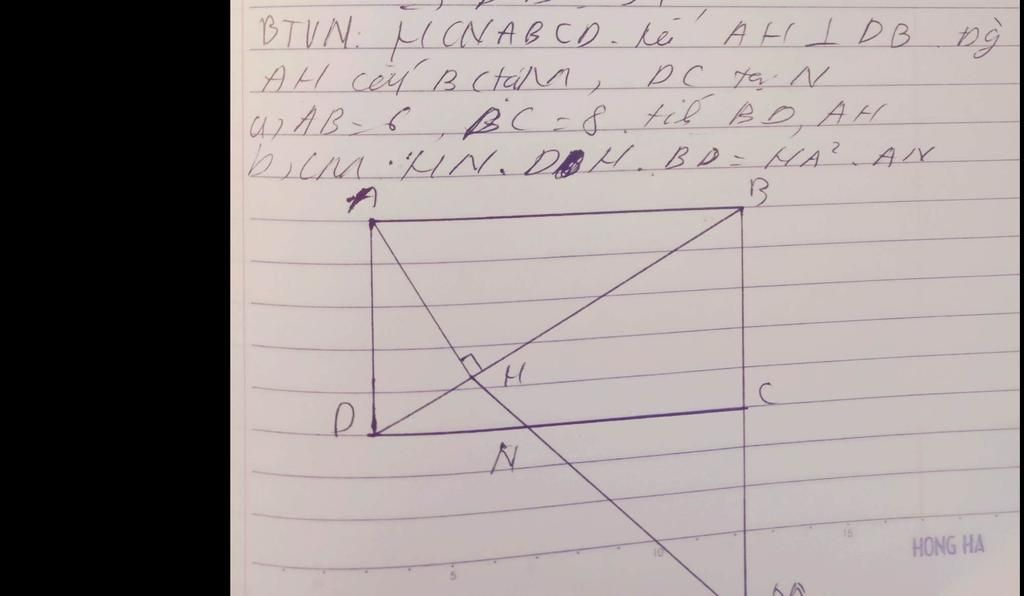 BTVN: HCN ABCD. kẻ AH ⊥ DB. Đg̀
AH cắt BC tại M, DC tại N
a, AB = 6, BC = 8. tính BD, AH
b, CM: HN. DH. BD = HA². AN
A
B
H
C
D
N
M
15
10
5
HONG HA